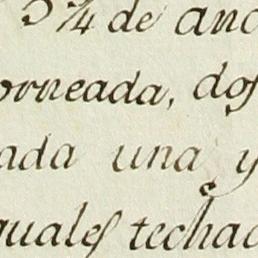 3¼ de anc
orneada, dos
ada una y
quales techad